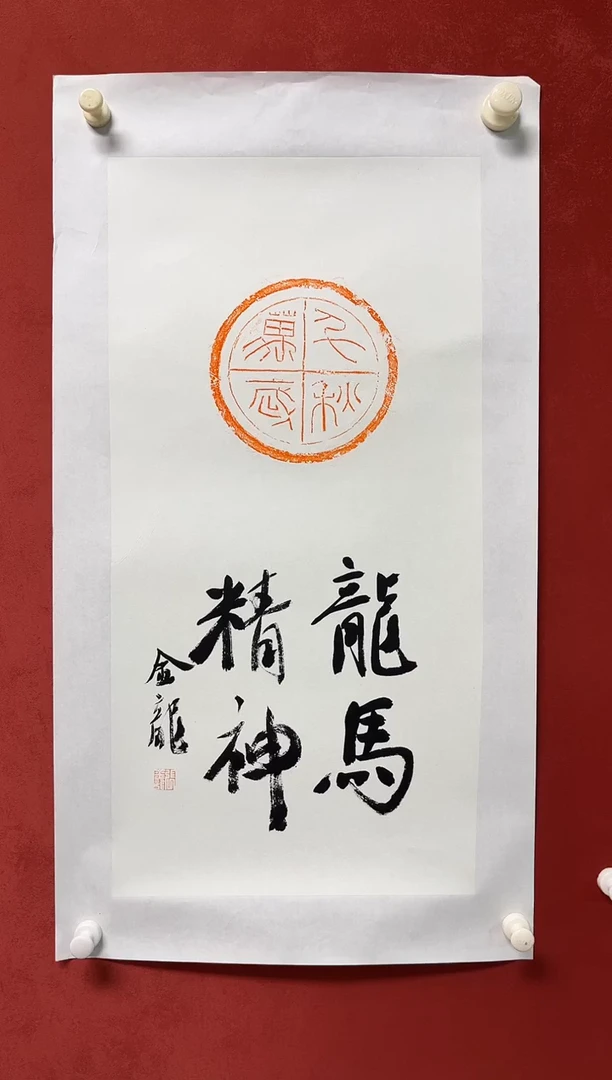 千秋
萬歲
龍馬
精神
金龍